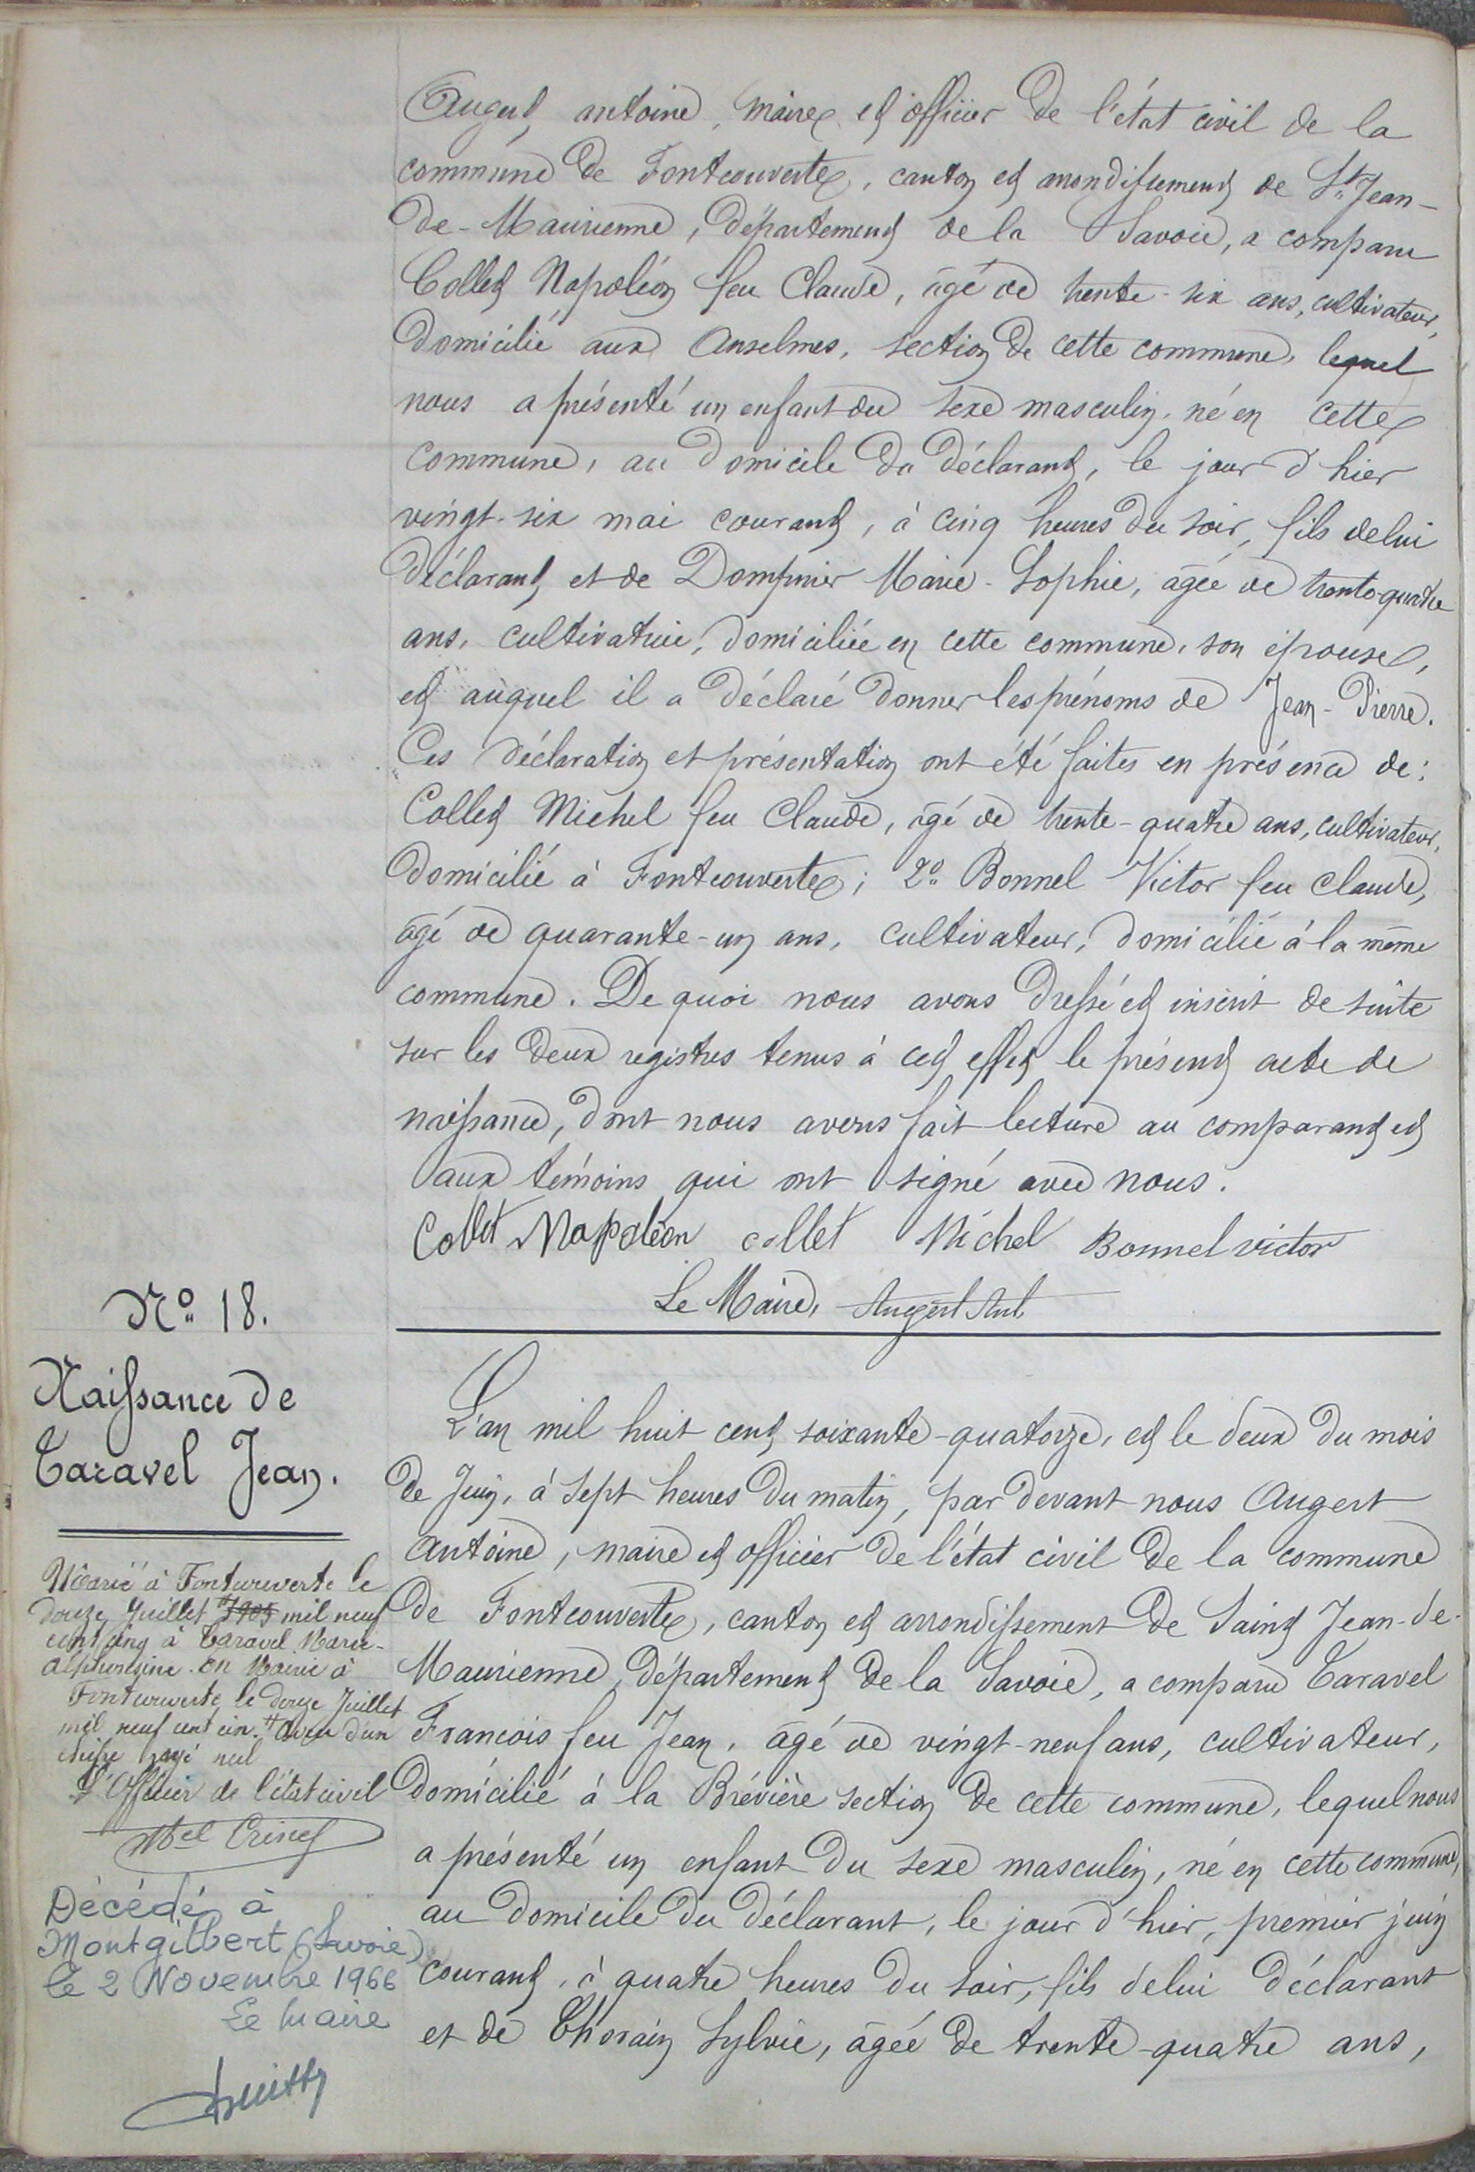 Augert antoine, maire et officier de l'état civil de la
commune de Fontcouverte, canton et arrondissement de St. Jean-
de-Maurienne, département de la Savoie, a comparu
Collet Napoléon feu Claude, âgé de trente-six ans, cultivateur,
domicilié aux Anselmes, section de cette commune, lequel
nous a présenté un enfant du sexe masculin, né en cette
commune, au domicile du déclarant, le jour d'hier
vingt-six mai courant, à cinq heures du soir, fils de lui
déclarant, et de Dompnier Marie-Sophie, âgée de trente-quatre
ans, cultivatrice, domiciliée en cette commune, son épouse,
et auquel il a déclaré donner les prénoms de Jean-Pierre.
Ces déclaration et présentation ont été faites en présence de:
Collet Michel feu Claude, âgé de trente-quatre ans, cultivateur,
domicilié à Fontcouverte; 2º Bonnel Victor feu Claude,
âgé de quarante-un ans, cultivateur, domicilié à la même
commune. De quoi nous avons dressé et inscrit de suite
sur les deux registres tenus à cet effet le présent acte de
naissance, dont nous avons fait lecture au comparant et
aux témoins qui ont signé avec nous.
Collet Napoléon collet Michel Bonnel victor
Le Maire, Augert Ant.
Nº 18.
Naissance de
Taravel Jean.
Marié à Fontcouverte le
douze Juillet 1905 mil neuf
cent cinq à Taravel Marie-
Alphonsine. En Mairie à
Fontcouverte, le douze Juillet
mil neuf cent cinq. d'un
chiffre rayé nul
L'Officier de l'état civil
Décédé à
Montgilbert (Savoie)
le 2 Novembre 1966
Le Maire
L'an mil huit cent soixante-quatorze, et le deux du mois
de Juin, à sept heures du matin, par devant nous Augert
Antoine, maire et officier de l'état civil de la commune
de Fontcouverte, canton et arrondissement de Saint Jean-de-
Maurienne, département de la Savoie, a comparu Taravel
Francois feu Jean, âgé de vingt-neuf ans, cultivateur,
domicilié à la Brévière section de cette commune, lequel nous
a présenté un enfant du sexe masculin, né en cette commune,
au domicile du déclarant, le jour d'hier, premier juin
courant, à quatre heures du soir, fils de lui déclarant
et de Thorain Sylvie, âgée de trente-quatre ans,